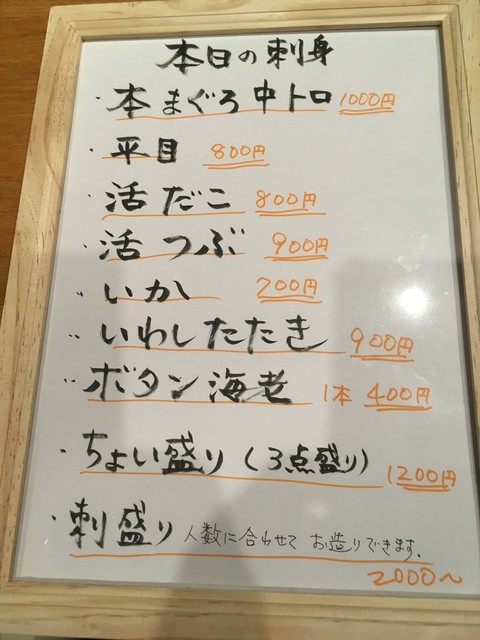 本日の刺身
・本まぐろ中トロ 1000円
・平目 800円
・活だこ 800円
・活つぶ 900円
・いか 200円
・いわしたたき 900円
・ボタン海老 1本 400円
・ちょい盛り(3点盛り) 1200円
・刺盛り 人数に合わせて お造りできます。
2000〜